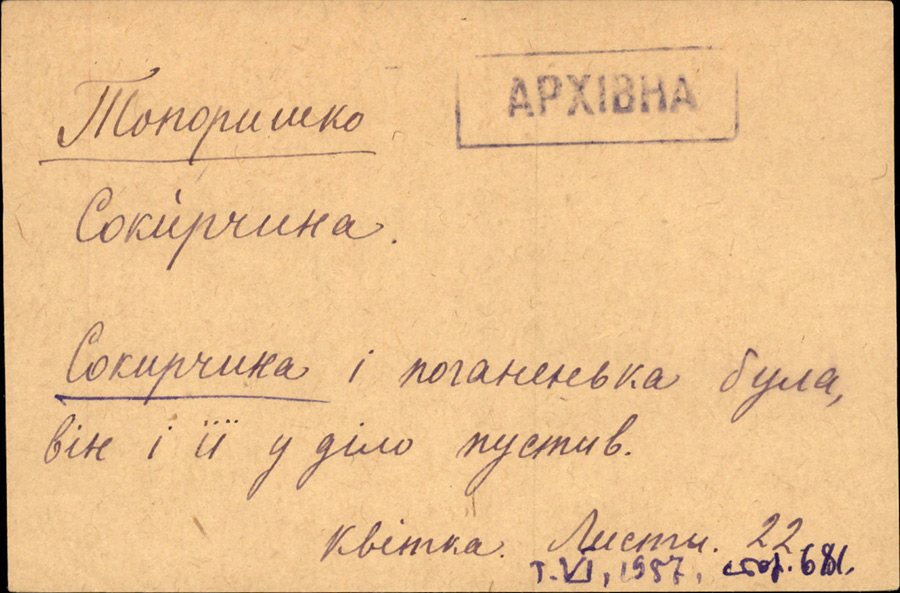 АРХІВНА
Топоришко
Соки́рчина.
Сокирчина і поганенька була,
він і її у діло пустив.
Квітка. Листи. 22
т. VI, 1957, стор. 681.